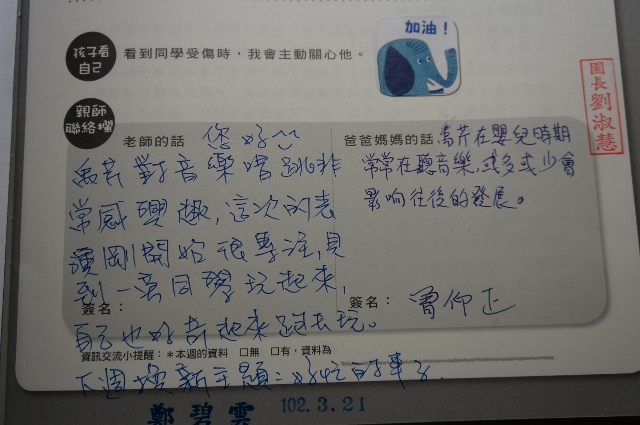 加油！
孩子看
自己
看到同學受傷時，我會主動關心他。
園長劉淑慧
親師
聯絡欄
老師的話 您好
禹芹對音樂唱跳非
常感興趣，這次的表
演剛開始很專注，見
到一旁同學玩起來，
簽名：
自己也好奇起來跑去玩。
爸爸媽媽的話 禹芹在嬰兒時期
常常在聽音樂，或多或少會
影响往後的發展。
簽名： 曾仰正
資訊交流小提醒：＊本週的資料 口無 口有，資料為
下週換新主題：好忙的車子.
鄭碧雲 102.3.21